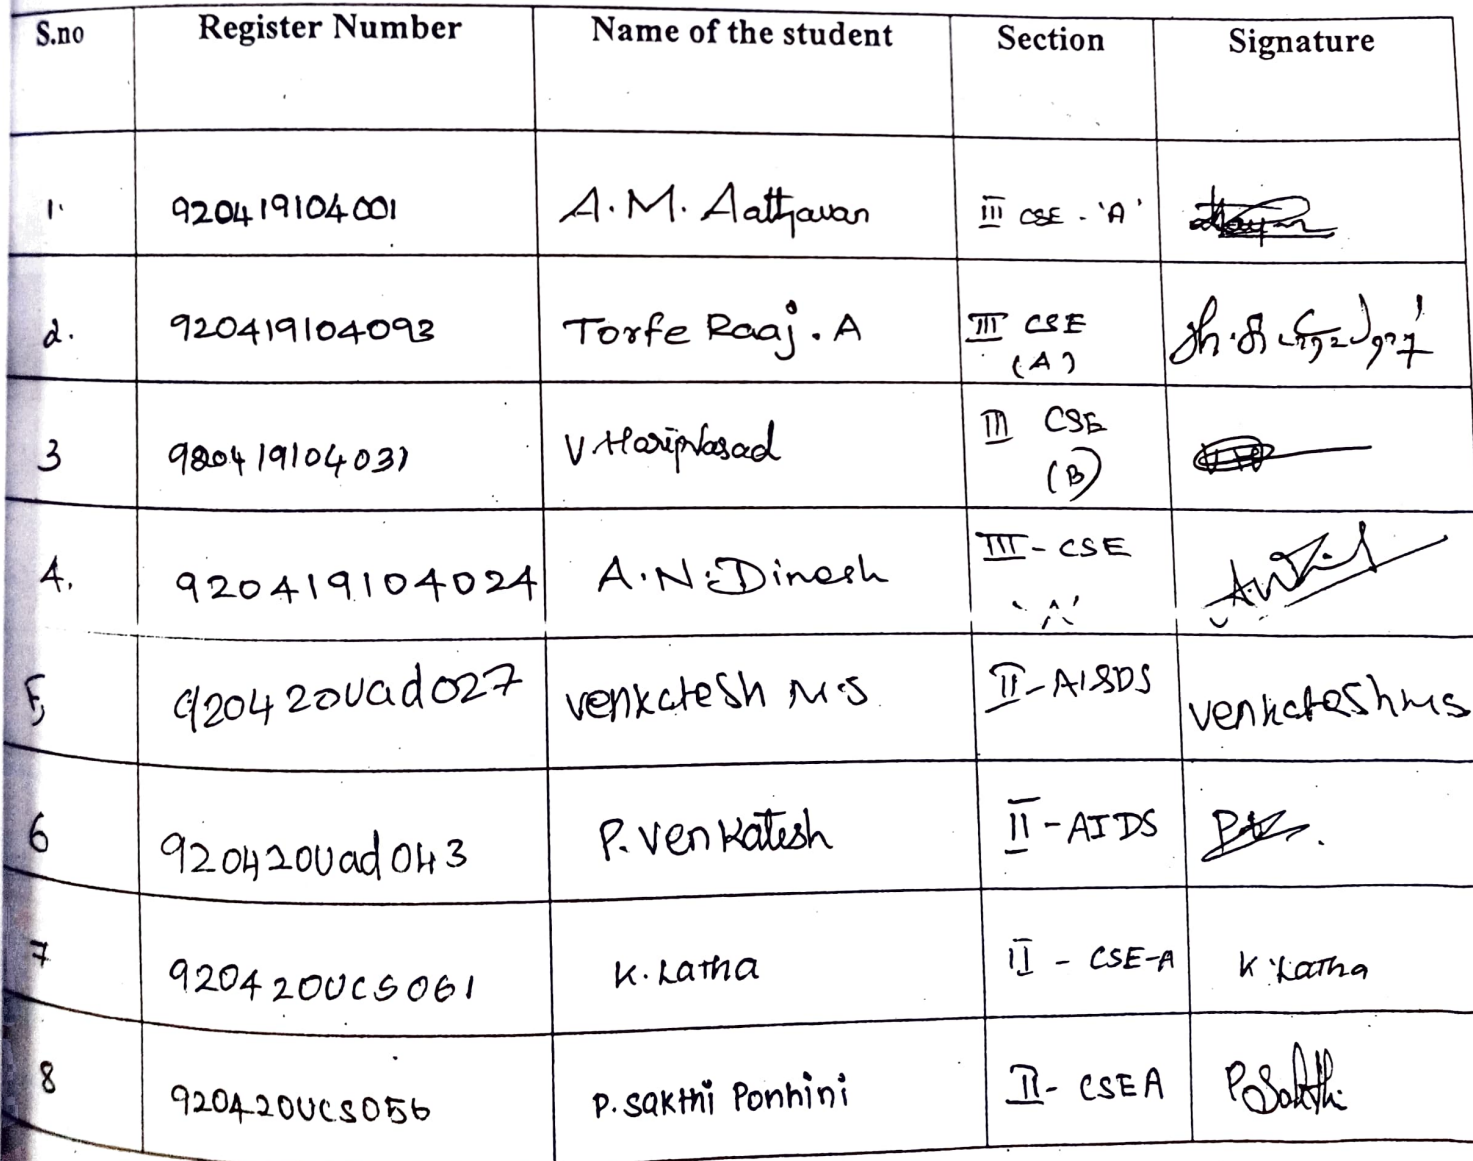 S.no Register Number Name of the student Section Signature
1. 920419104001 A.M. Aathavan III CSE - 'A'
2. 920419104093 Torfe Raaj. A III CSE
(A)
3 920419104031 V. Hariprasad III CSE
(B)
4. 920419104024 A.N. Dinesh III - CSE
'A'
5, 920420uad027 venkatesh M.S II - AI&DS venkatesh MS
6 920420uad043 P. Venkatesh II - AIDS
7 920420UCS061 K. Latha II - CSE-A K. Latha
8 920420UCS056 P. Sakthi Ponnini II - CSE A P. Sakthi